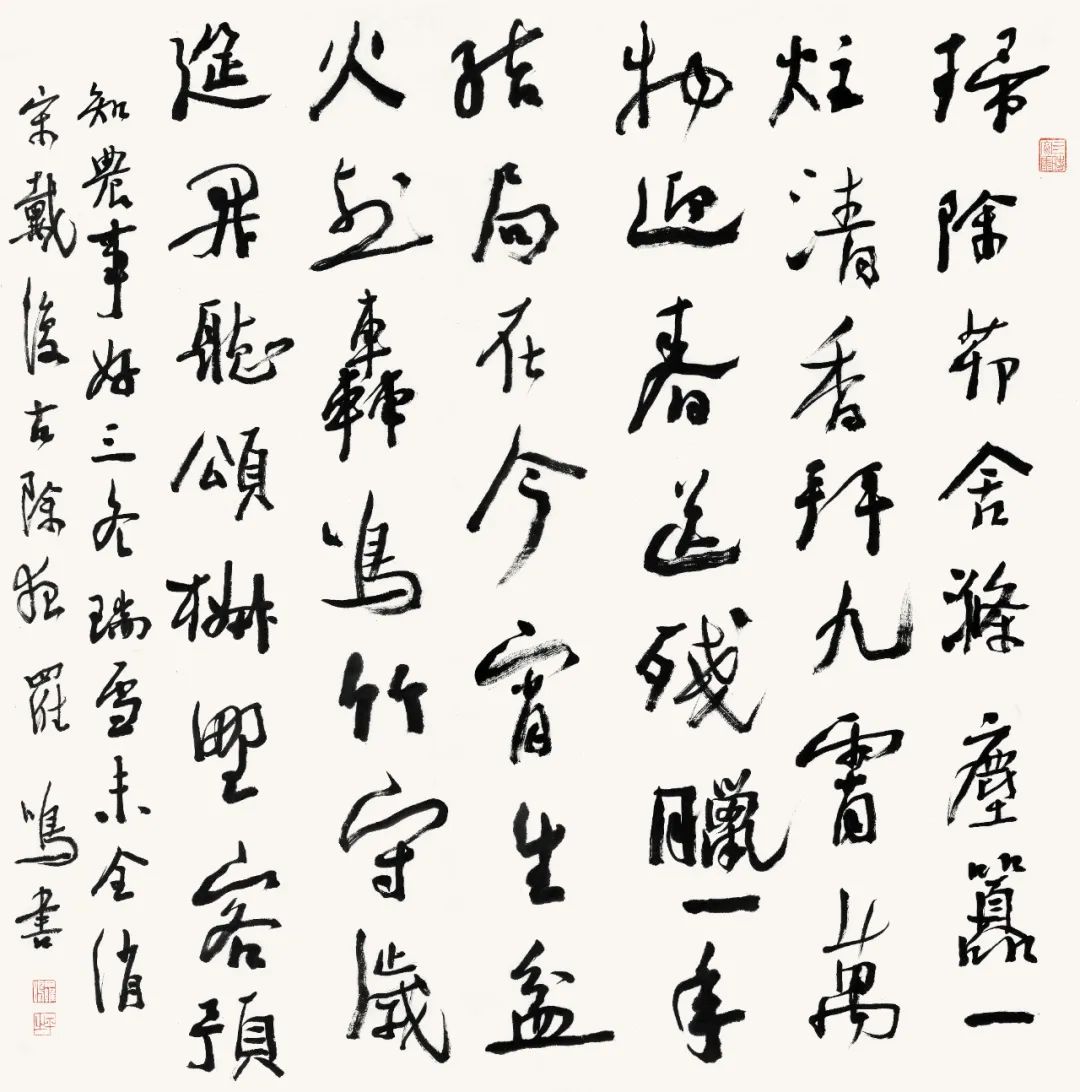 掃除茆舍滌塵囂一
炷清香拜九霄萬
物迎春送殘臘一年
結局在今宵生盆
火烈轟鳴竹守歲
筵開聽頌椒野客預
知農事好三冬瑞雪未全消
宋戴復古除夜 羅鳴書